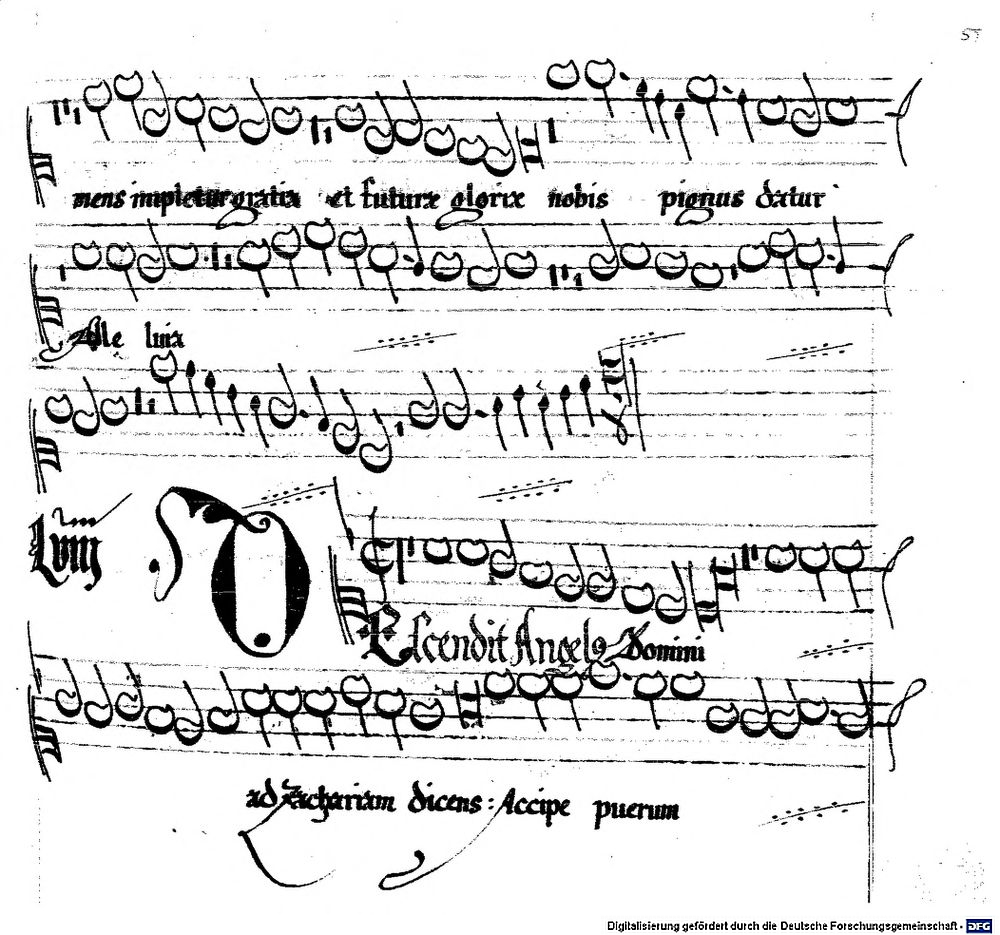 mens impletur gratia et futuræ gloriæ nobis pignus datur
Alle luia
Lviij
DEscendit Angelꝰ Domini
ad Zachariam dicens: Accipe puerum
Digitalisierung gefördert durch die Deutsche Forschungsgemeinschaft - DFG